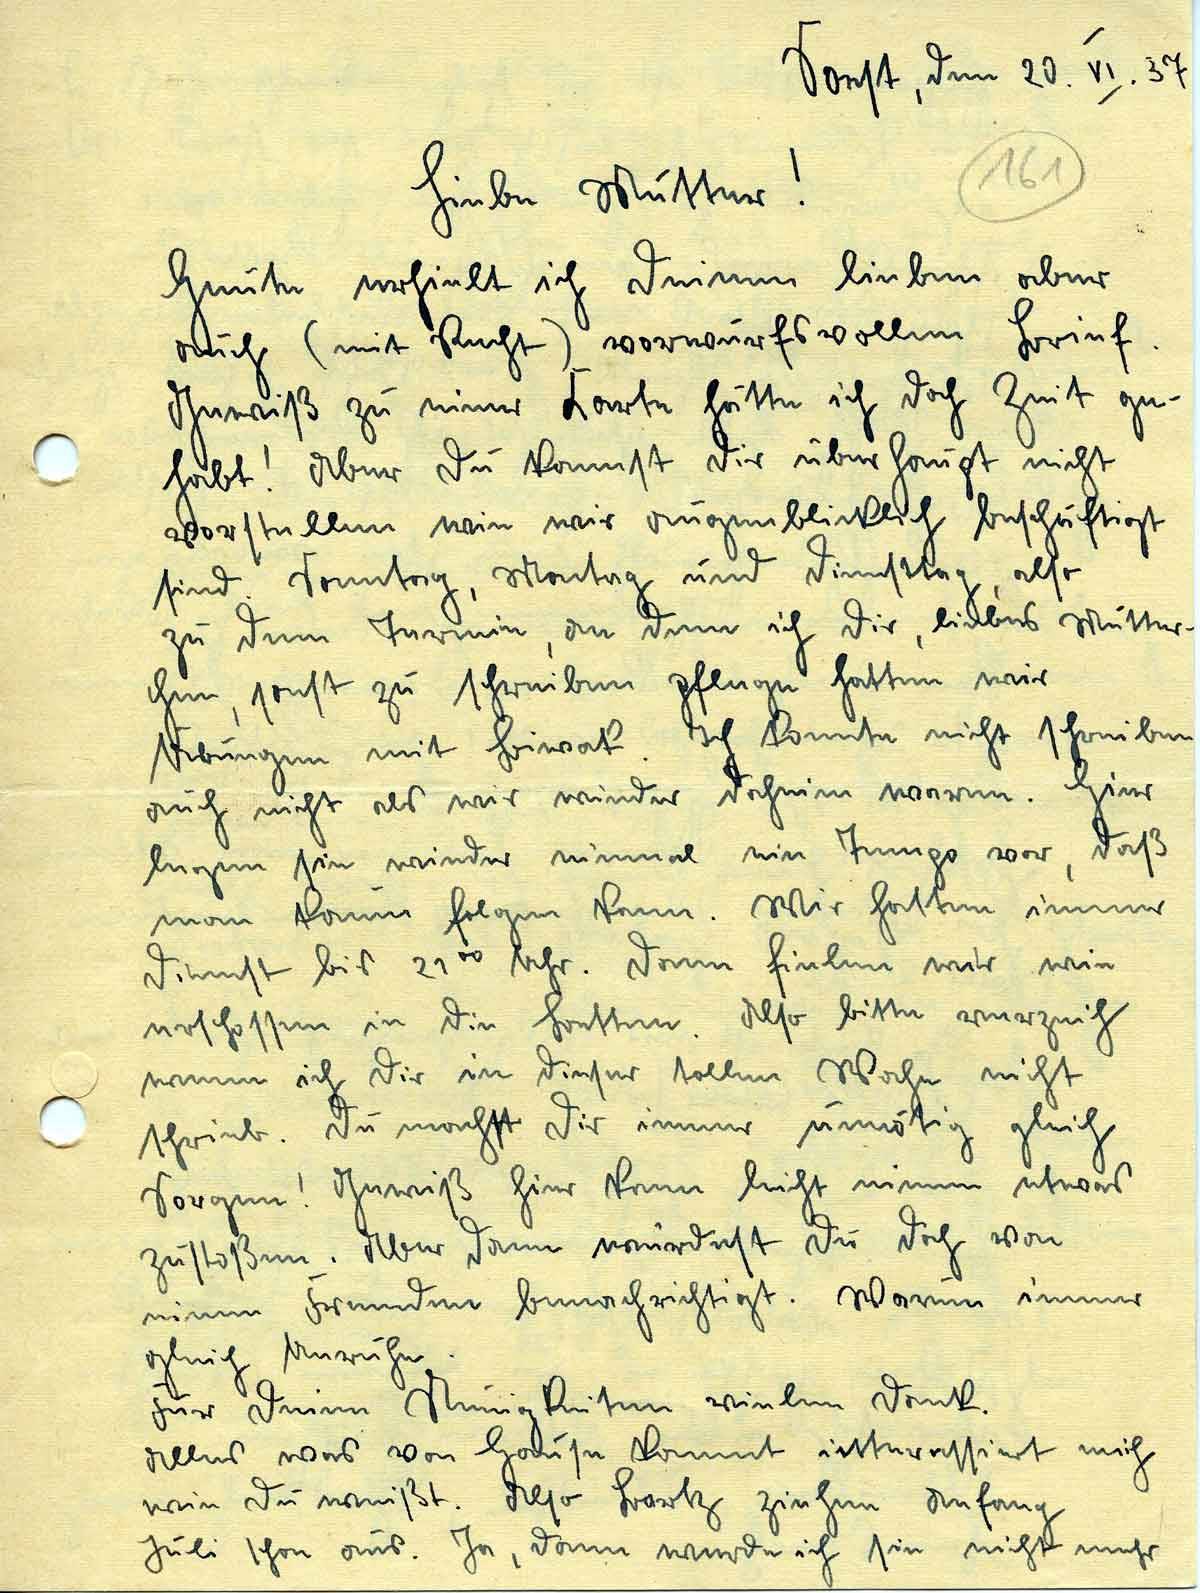 Soest, den 20. VI. 37
161
Liebe Mutter!
Heute erhielt ich Deinen lieben aber
auch (mit Recht) vorwurfsvollen Brief.
Gewiß zu einer Karte hätte ich doch Zeit ge-
habt! Aber Du kannst Dir überhaupt nicht
vorstellen wie wir augenblicklich beschäftigt
sind. Sonntag, Montag und Dienstag, also
zu dem Termin, an dem ich Dir, liebes Mutter-
chen, sonst zu schreiben pflege hatten wir
Übungen mit Biwak. Ich konnte nicht schreiben
auch nicht als wir wieder daheim waren. Hier
legen sie wieder einmal ein Tempo vor, daß
man kaum folgen kann. Wir hatten immer
Dienst bis 21⁰⁰ Uhr. Dann fielen wir wie
erschossen in die Betten. Also bitte verzeih
wenn ich Dir in dieser tollen Woche nicht
schrieb. Du machst Dir immer unnötig gleich
Sorgen! Gewiß hier kann leicht einem etwas
zustoßen. Aber dann würdest Du doch von
einem Fremden benachrichtigt. Warum immer
gleich Unruhe.
Für Deine Neuigkeiten vielen Dank.
Alles was von Hause kommt itterassiert mich
wie Du weißt. Also ziehen Anfang
Juli schon aus. Ja, dann werde ich sie nicht mehr